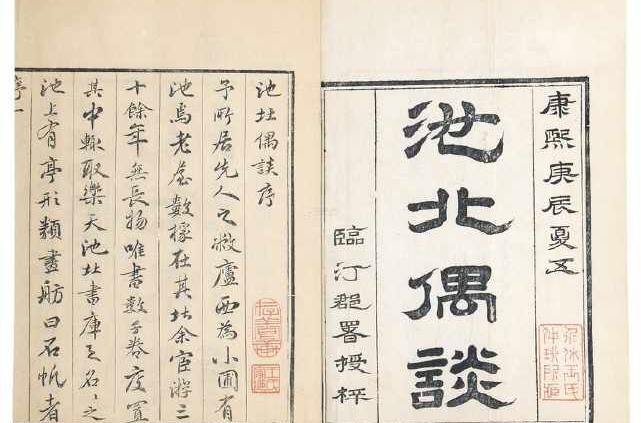 康熙庚辰夏五
池北偶談
臨汀郡署授梓
池北偶談序
予所居先人之敝廬西為小圃有
池焉老屋數椽在其北余宦游三
十餘年無長物唯書數千卷庋置
其中輙取樂天池北書庫之名名之
池上有亭形類畫舫曰石帆者
序一